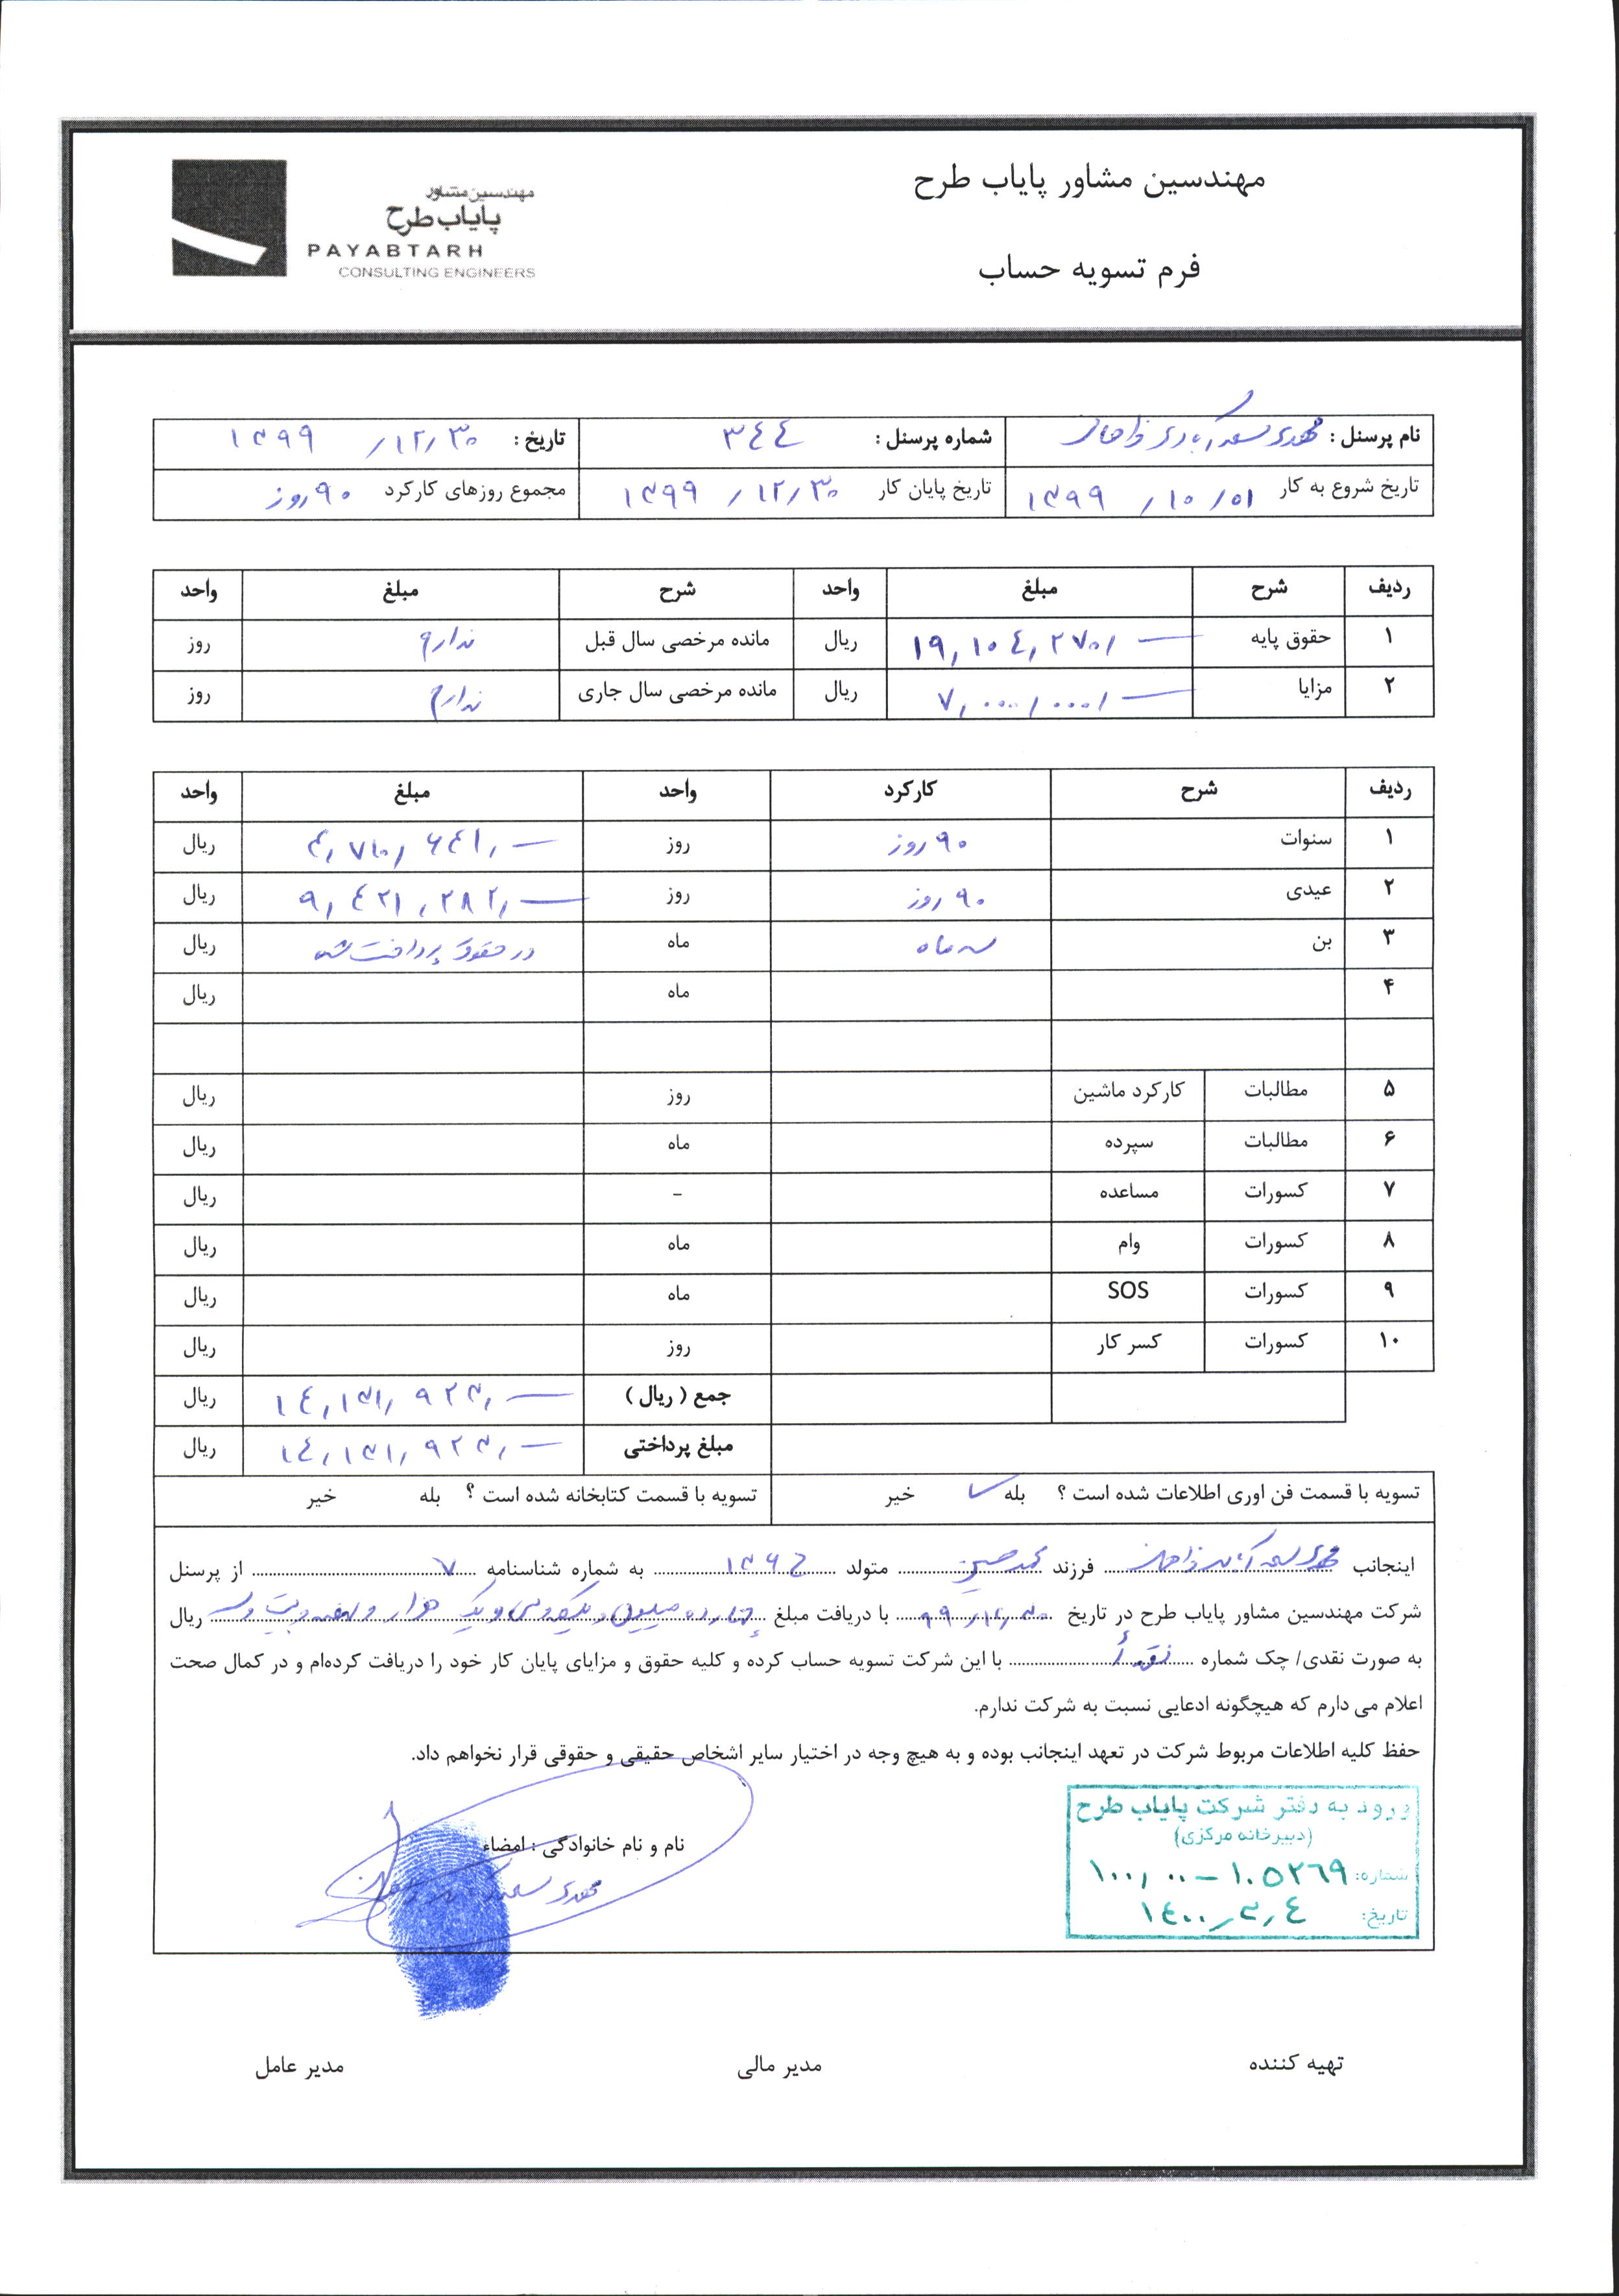 مهندسین مشاور پایاب طرح
فرم تسویه حساب
مهندسین مشاور
پایاب طرح
PAYABTARH
CONSULTING ENGINEERS
نام پرسنل : مهدی شماره پرسنل : ۳۴۴ تاریخ : ۱۳۹۹/۱۲/۳۰
تاریخ شروع به کار ۱۳۹۹/۱۰/۰۱ تاریخ پایان کار ۱۳۹۹/۱۲/۳۰ مجموع روزهای کارکرد ۹۰ روز
ردیف شرح مبلغ واحد شرح مبلغ واحد
۱ حقوق پایه ۱۹,۱۰۴,۲۷۰/- ریال مانده مرخصی سال قبل ندارم روز
۲ مزایا ۷,۰۰۰/۰۰۰/- ریال مانده مرخصی سال جاری ندارم روز
ردیف شرح کارکرد واحد مبلغ واحد
۱ سنوات ۹۰ روز روز ۴,۷۱۰,۶۴۱,- ریال
۲ عیدی ۹۰ روز روز ۹,۴۲۱,۲۸۲,- ریال
۳ بن سه ماه ماه در حقوق پرداخت شده ریال
۴ ماه ریال
۵ مطالبات کارکرد ماشین روز ریال
۶ مطالبات سپرده ماه ریال
۷ کسورات مساعده - ریال
۸ کسورات وام ماه ریال
۹ کسورات SOS ماه ریال
۱۰ کسورات کسر کار روز ریال
جمع ( ریال ) ۱۴,۱۳۱,۹۲۳,- ریال
مبلغ پرداختی ۱۴,۱۳۱,۹۲۳,- ریال
تسویه با قسمت فن اوری اطلاعات شده است ؟ بله خیر تسویه با قسمت کتابخانه شده است ؟ بله خیر
اینجانب مهدی فرزند محمدحسین متولد به شماره شناسنامه ۷ از پرسنل
شرکت مهندسین مشاور پایاب طرح در تاریخ ۹۹/۱۲/۳۰ با دریافت مبلغ چهارده میلیون و یکصد و سی و یک هزار و نهصد و بیست و سه ریال
به صورت نقدی/ چک شماره نقداً با این شرکت تسویه حساب کرده و کلیه حقوق و مزایای پایان کار خود را دریافت کرده‌ام و در کمال صحت
اعلام می دارم که هیچگونه ادعایی نسبت به شرکت ندارم.
حفظ کلیه اطلاعات مربوط شرکت در تعهد اینجانب بوده و به هیچ وجه در اختیار سایر اشخاص حقیقی و حقوقی قرار نخواهم داد.
نام و نام خانوادگی : امضاء
مهدی
ورود به دفتر شرکت پایاب طرح
(دبیرخانه مرکزی)
شماره: ۱۰۰/۰۰-۱۰۵۲۶۹
تاریخ: ۱۴۰۰/۳/۴
تهیه کننده مدیر مالی مدیر عامل